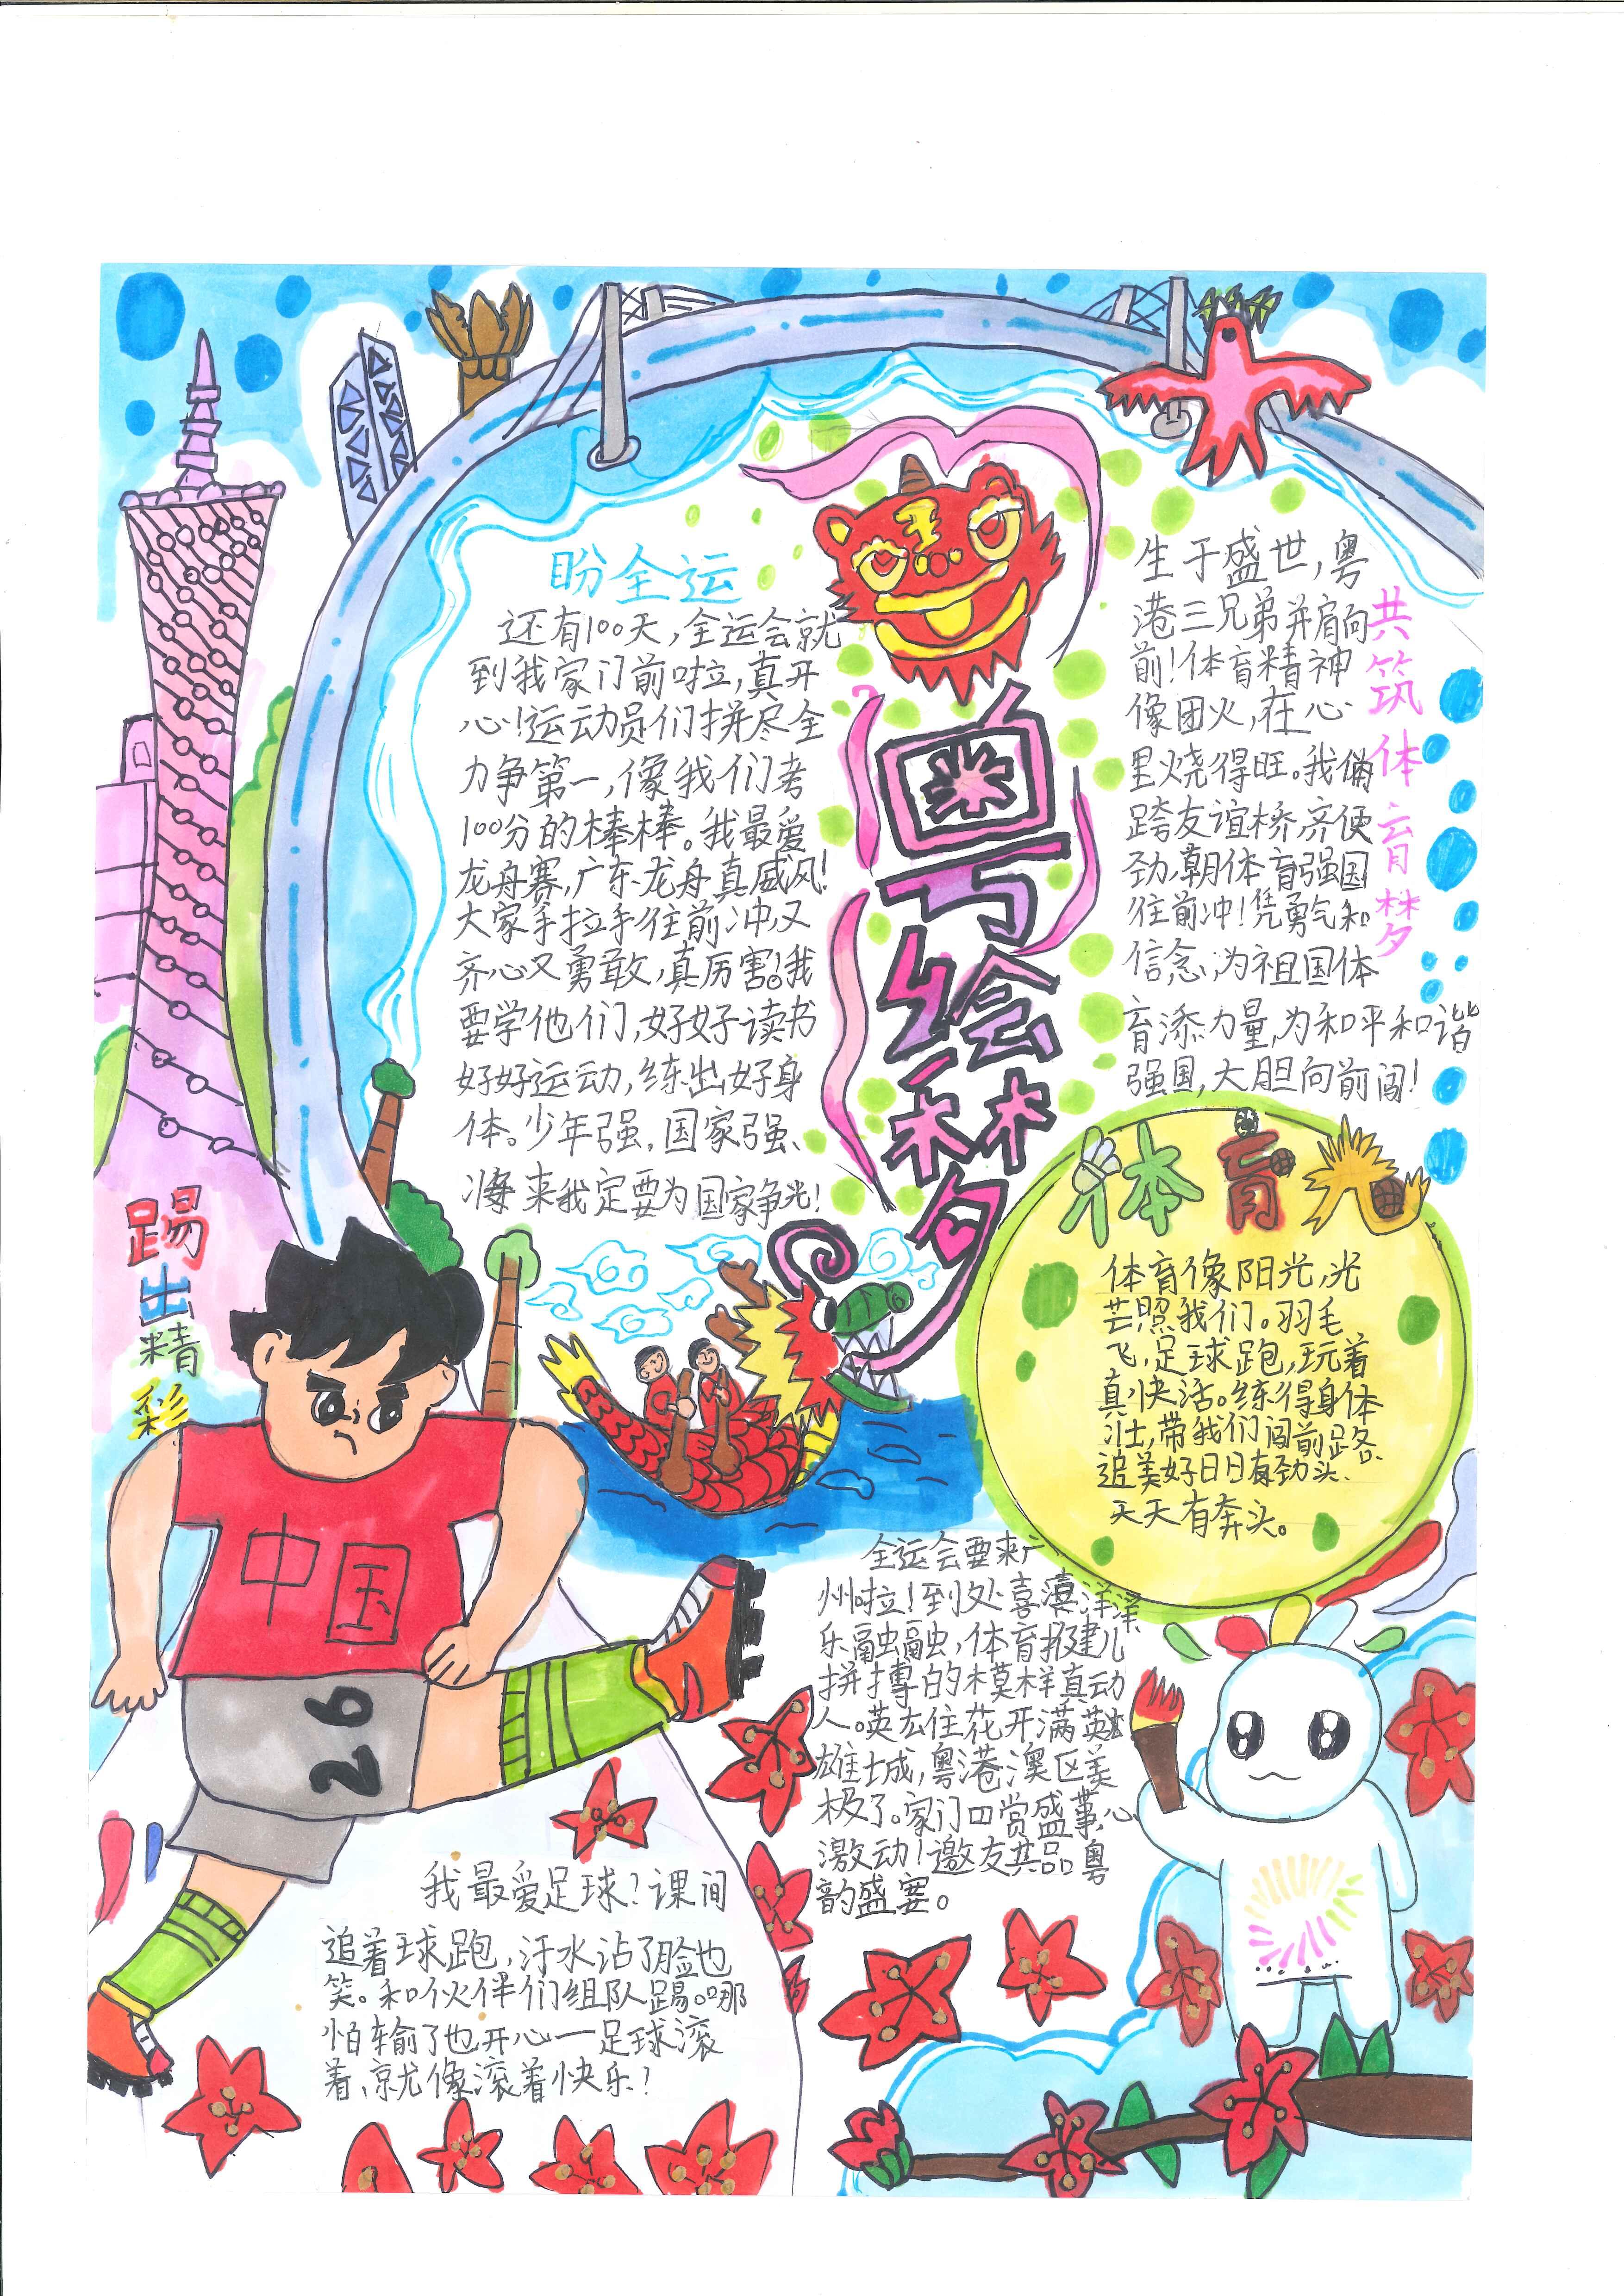 盼全运
还有100天,全运会就
到我家门前啦,真开
心!运动员们拼尽全
力争第一,像我们考
100分的棒棒。我最爱
龙舟赛,广东龙舟真威风!
大家手拉手往前冲,又
齐心又勇敢,真厉害!我
要学他们,好好读书
好好运动,练出好身
体。少年强,国家强、
将来我定要为国家争光!
粤绘梦
共筑体育梦
生于盛世,粤
港三兄弟并肩向
前!体育精神
像团火,在心
里烧得旺。我俩
跨友谊桥,齐使
劲,朝体育强国
往前冲!凭勇气和
信念,为祖国体
育添力量,为和平和谐
强国,大胆向前闯!
体育
体育像阳光,光
芒照我们。羽毛
飞,足球跑,玩着
真快活。练得身体
壮,带我们闯前路、
追美好日日有劲头、
天天有奔头。
踢出精彩
中国
26
全运会要来广
州啦!到处喜洋洋
乐融融,体育健儿
拼搏的模样真动
人。英花开满英
雄城,粤港澳区美
极了。家门口赏盛事,心
激动!邀友共品粤
韵盛宴。
我最爱足球?课间
追着球跑,汗水沾了脸也
笑。和伙伴们组队踢。哪
怕输了也开心一足球滚
着,就像滚着快乐!